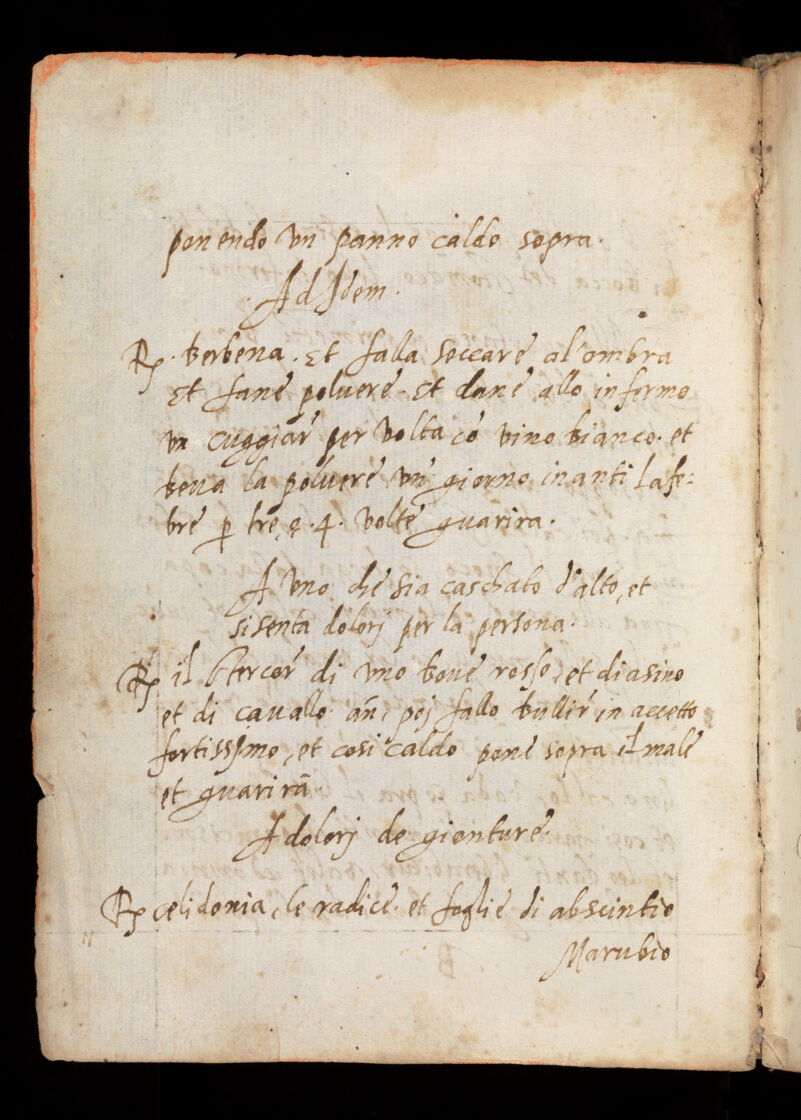 ponendo un panno caldo sopra.
Ad Idem.
℞. berbena. et falla seccare al'ombra
et fane poluere. et dane allo infermo
un cuggiar per uolta cõ uino bianco. et
beua la poluere un giorno inanti lafe:
bre p̱ tre, o .4. uolte guarira.
A uno che sia caschato d'alto, et
sisenta dolorj per la persona.
℞ il stercor di uno boue rosso, et diasino
et di cauallo añ, poj fallo bullir in accetto
fortissimo, et cosi caldo pone sopra il male
et guarirã.
A dolorj de gionture.
℞ cælidonia, le radice. et foglie di abscintio
Marubio